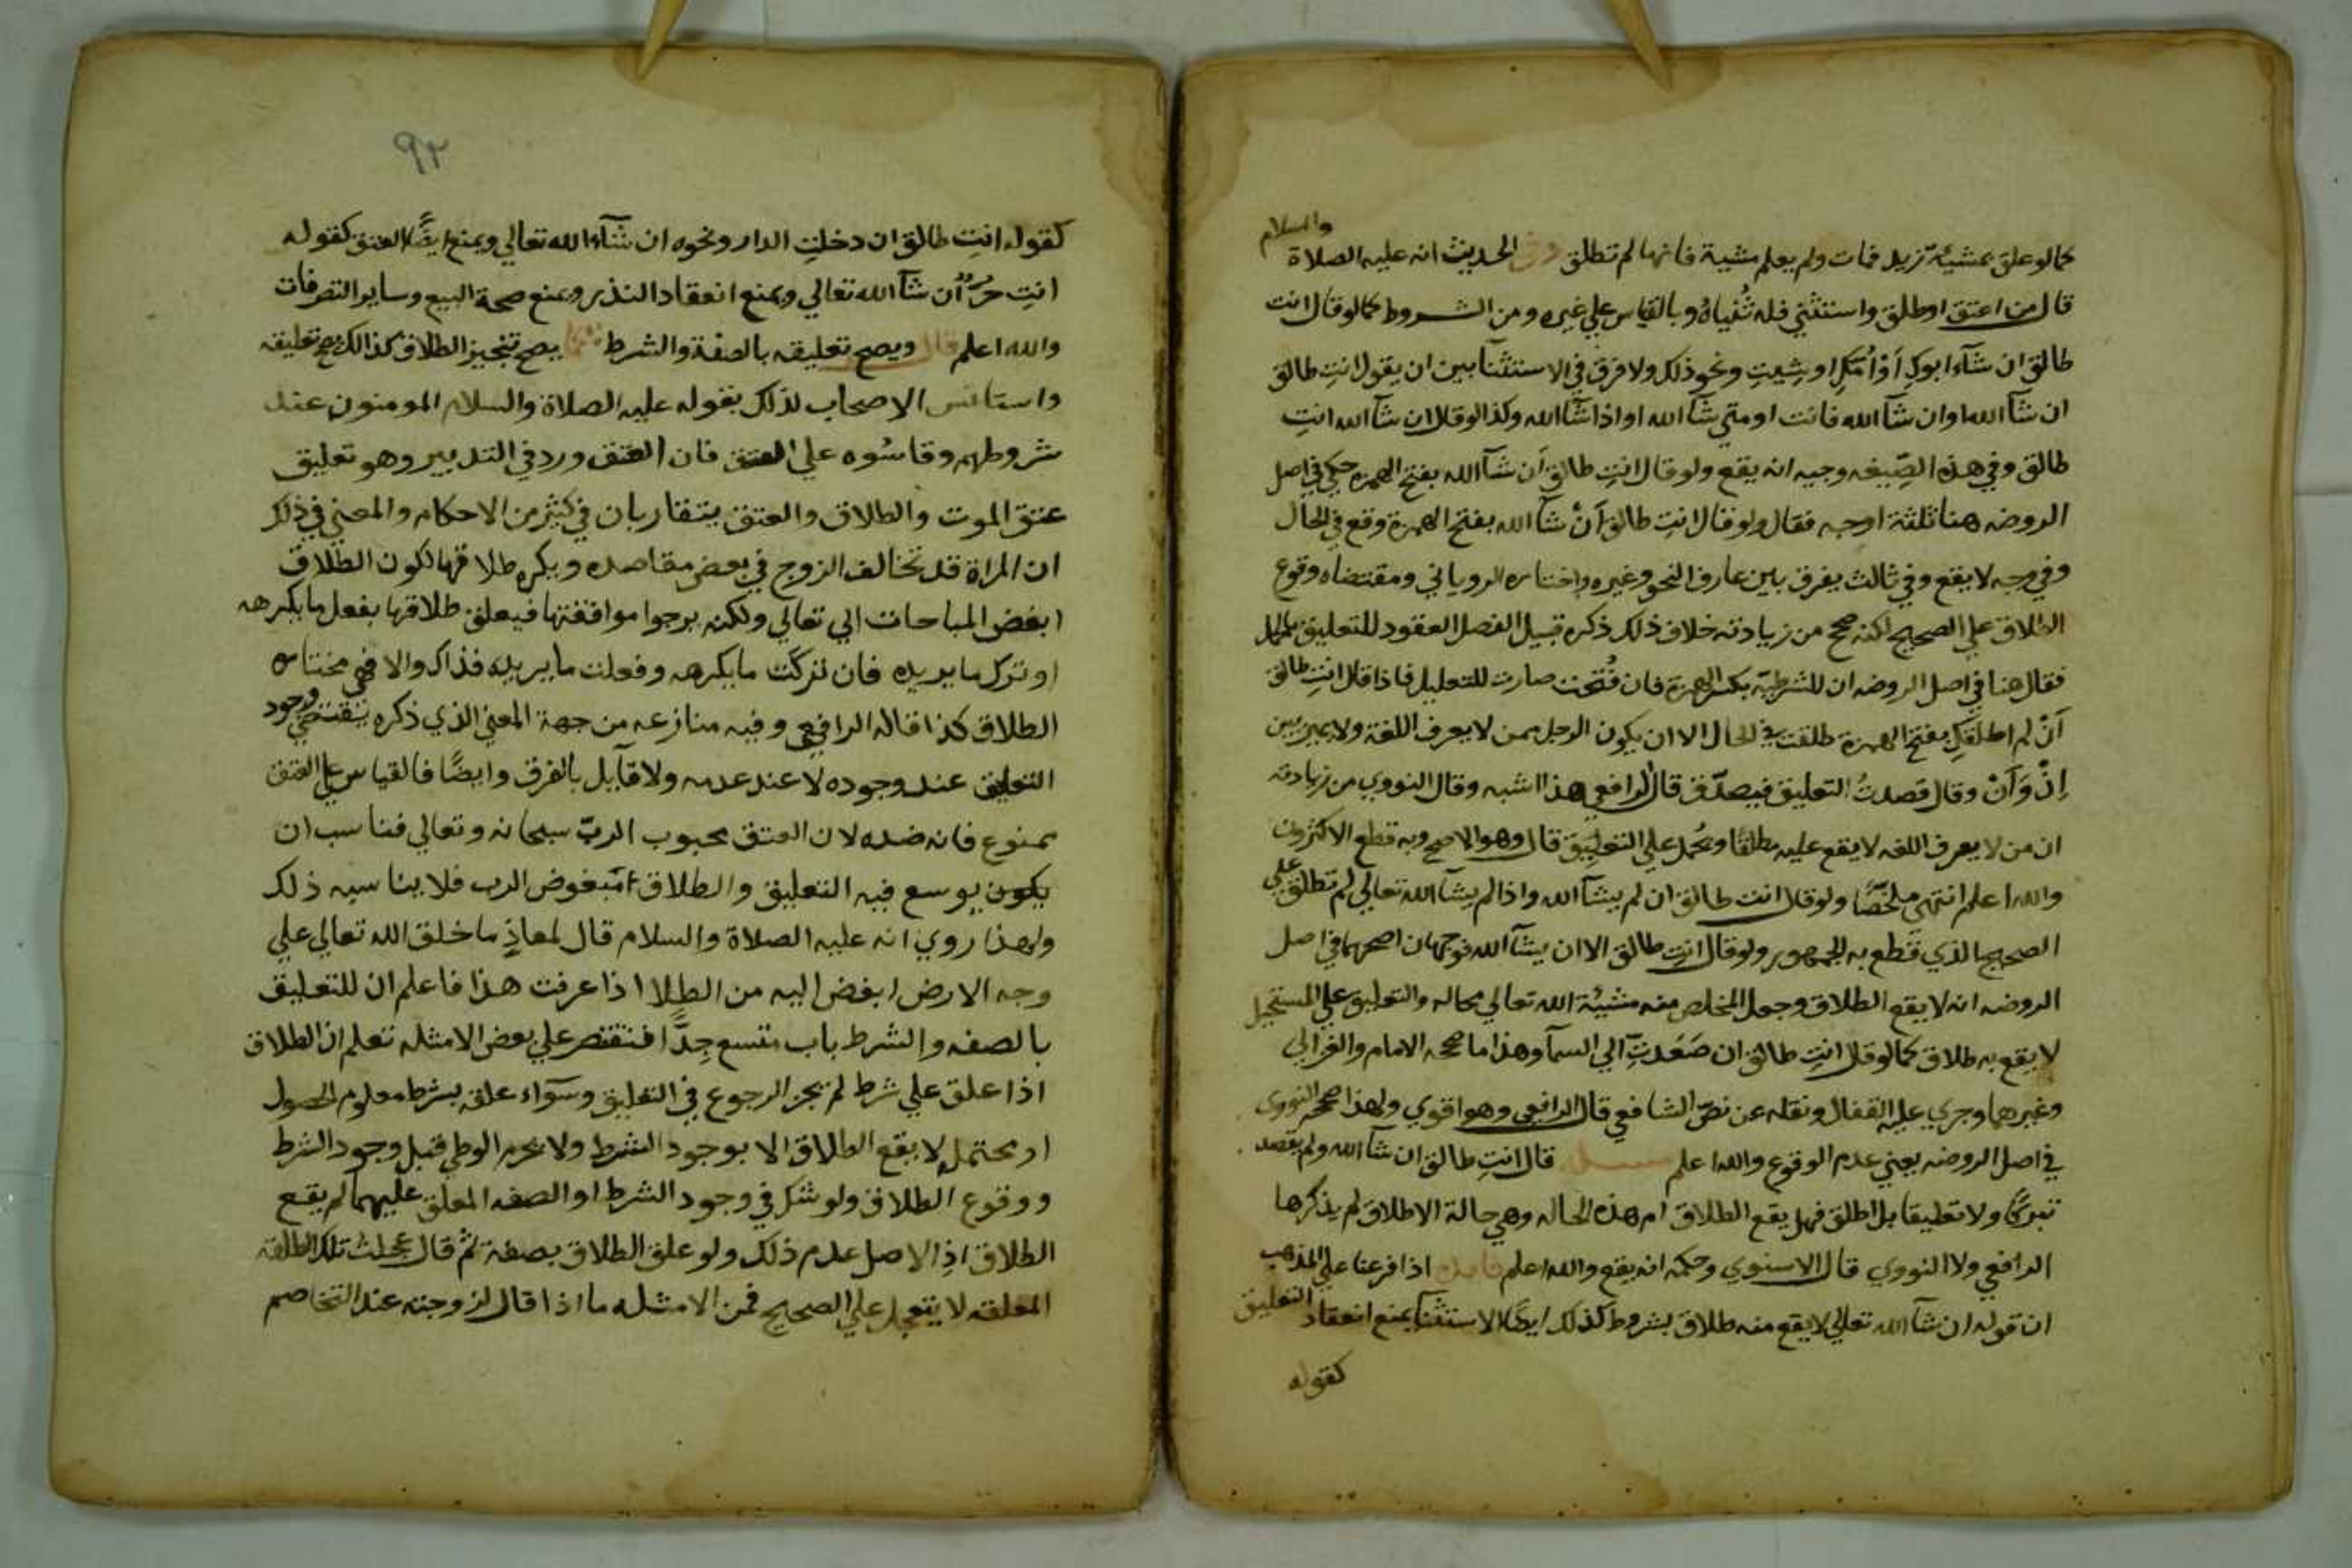 والسلام
كمالو علق بمشيئة زيد فمات ولم يعلم مشية فانها لم تطلق وفي الحديث انه عليه الصلاة
قال من اعتق اوطلق واستثني فله ثُنياهُ وبالقياس علي غيره ومن الشروط كمالو قال انت
طالق ان شآء ابوكِ أوْ أُمُّكِ او شِيتِ ونحو ذلك ولا فرق في الاستثنآ بين ان يقول انتِ طالق
ان شآ الله او ان شآ الله فانت او متي شآ الله او اذا شآ الله وكذا لو قال ان شآ الله انتِ
طالق وفي هذه الصِيغه وجيه انه يقع ولو قال انتِ طالق أن شآ الله بفتح الهمزه حكي في اصل
الروضه هنا ثلثة اوجه فقال ولو قال انتِ طالق أنْ شآ الله بفتح الهمزة وقع في الحال
وفي وجه لا يقع وفي ثالث يفرق بين عارف النحو وغيره واختاره الروياني ومقتضاه وقوع
الطلاق علي الصحيح لكنه صحح من زيادته خلاف ذلك ذكره قبيل الفصل المعقود للتعليق بالحمل
فقال هنا في اصل الروضه ان للشرطيه بكسر الهمزة فان فُتحت صارت للتعليل فاذا قال انتِ طالق
أنْ لم اطلقكِ بفتح الهمزة طلقت في الحال الا ان يكون الرجل ممن لا يعرف اللغة ولا يميز بين
إنْ وَأنْ وقال قَصدتُ التعليق فيصدّق قال الرافعي هذا اشبه وقال النووي من زيادته
ان من لا يعرف اللغه لا يقع عليه مطلقًا ويُحمل علي التعليق قال وهو الاصح وبه قطع الاكثرون
والله اعلم انتهي ملخصًا ولو قال انت طالق ان لم يشآ الله واذا لم يشآ الله تعالي لم تطلق علي
الصحيح الذي قطع به الجمهور ولو قال انتِ طالق الا ان يشآ الله فوجهان اصحهما في اصل
الروضه انه لا يقع الطلاق وجعل المخلص منه مشيئة الله تعالي محاله والتعليق علي المستحيل
لا يقع به طلاق كمالو قال انتِ طالق ان صَعَدتِ الي السمآ وهذا ما صححه الامام والغزالي
وغيرهما وجري عليه القفال ونقله عن نصّ الشافعي قال الرافعي وهو اقوي ولهذا صححه النووي
في اصل الروضه يعني عدم الوقوع والله اعلم قال انتِ طالق ان شآ الله ولم يقصد
تبركًا ولا تعليقا بل اطلق فهل يقع الطلاق ام هذه الحاله وهي حالة الاطلاق لم يذكرها
الرافعي ولا النووي قال الاسنوي وحكمه انه يقع والله اعلم اذا فرعنا علي المذهب
ان قوله ان شآ الله تعالي لا يقع منه طلاق بشروط كذلك ايضًا الاستثنآ يمنع انعقاد التعليق
كقوله
٩٢
كقوله انتِ طالق ان دخلتِ الدار ونحوه ان شآء الله تعالي ويمنع ايضًا العتق كقوله
انتِ حرٌّ ان شآ الله تعالي ويمنع انعقاد النذر ويمنع صحة البيع وساير التصرفات
والله اعلم قال ويصح تعليقه بالصفة والشرط كما يصح تنجيز الطلاق كذالك يصح تعليقه
واستانس الاصحاب لذلك بقوله عليه الصلاة والسلام المومنون عند
شروطهم وقاسُوه علي العتق فان العتق ورد في التدبير وهو تعليق
عتق الموت والطلاق والعتق يتقاربان في كثير من الاحكام والمعني في ذلك
ان المراة قد تخالف الزوج في بعض مقاصده ويكره طلاقها لكون الطلاق
ابغض المباحات الي تعالي ولكنه يرجوا موافقتها فيعلق طلاقها بفعل ما يكرهه
او ترك ما يريده فان تركت ما يكرهه وفعلت ما يريده فذاك والا فهي مختاره
الطلاق كذا قاله الرافعي وفيه منازعه من جهة المعني الذي ذكره يقتضي وجود
التعليق عند وجوده لا عند عدمه ولا قآيل بالفرق وايضًا فالقياس علي العتق
ممنوع فانه ضده لان العتق محبوب الربّ سبحانه وتعالي فناسب ان
يكون يوسع فيه التعليق والطلاق مبغوض الرب فلا يناسبه ذلك
ولهذا روي انه عليه الصلاة والسلام قال لمعاذٍ ما خلق الله تعالي علي
وجه الارض ابغض اليه من الطلا اذا عرفت هذا فاعلم ان للتعليق
بالصفه والشرط باب متسع جدًّا فنقتصر علي بعض الامثله تعلم ان الطلاق
اذا علق علي شرط لم يجز الرجوع في التعليق وسوآء علقه بشرط معلوم الحصول
او محتمل لا يقع الطلاق الا بوجود الشرط ولا يحرم الوطي قبل وجود الشرط
ووقوع الطلاق ولو شك في وجود الشرط او الصفه المعلق عليهما لم يقع
الطلاق اذِ الاصل عدم ذلك ولو علق الطلاق بصفة ثُم قال عجلت تلك الطلقه
المعلقه لا يتعجل علي الصحيح فمن الامثله ما اذا قال لزوجته عند التخاصم